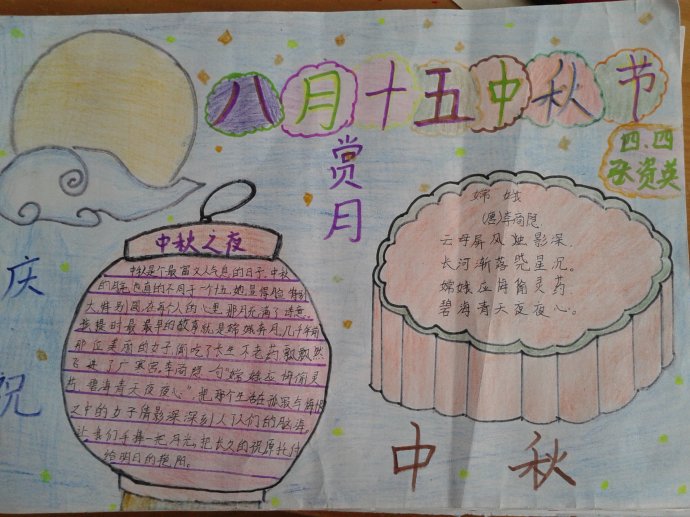 八月十五中秋节
四.四
张资英
赏月
庆祝
中秋之夜
中秋是个最富又人气息的日子,中秋
的月亮也真的不同于一个十五,她显得脸特别
大特别圆,在每个人的心里那月充满了诗意。
最早的故事就是嫦娥奔月,几千年前
那位美丽的女子偷吃了长生不老药飘飘然
飞进了广寒宫,李商隐一句“嫦娥应悔偷灵
药,碧海青天夜夜心”,把那个生活在孤寂与悔恨
之中的女子倩影深深刻入人们的脑海,
让我们手捧一把月光,把长久的祝愿托付
给明日的艳阳。
嫦娥
(唐)李商隐
云母屏风烛影深,
长河渐落晓星沉。
嫦娥应悔偷灵药
碧海青天夜夜心。
中秋